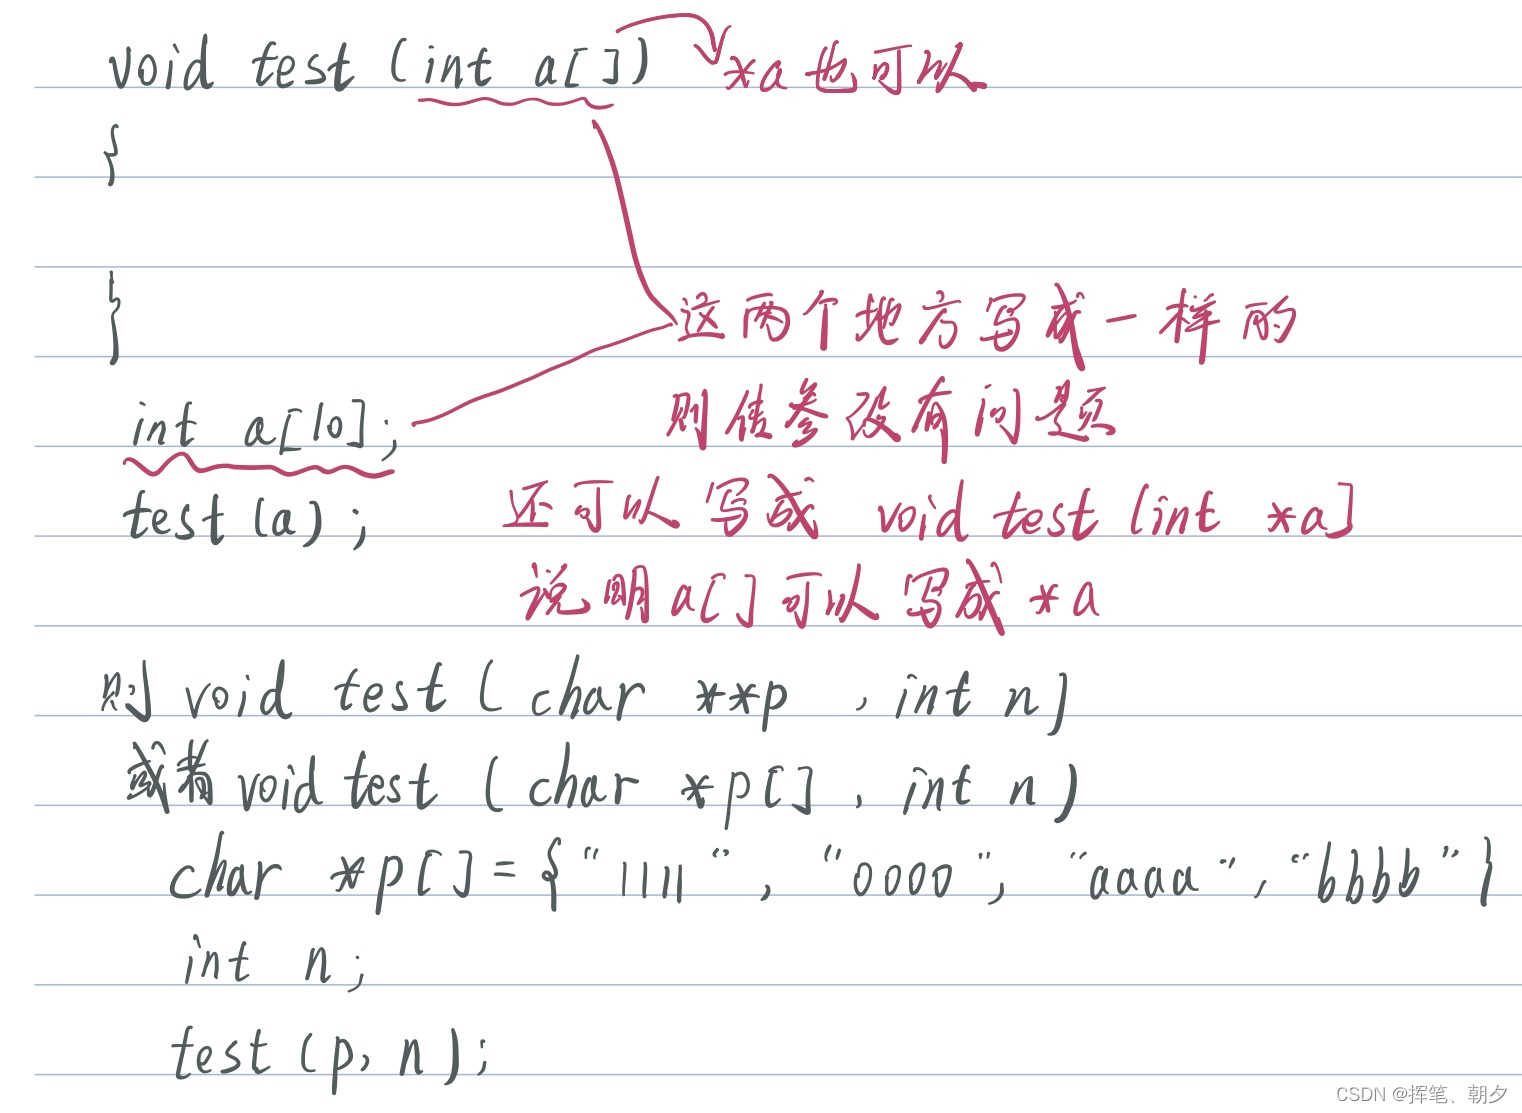 void test (int a[]) *a也可以
{
}
这两个地方写成一样的
int a[10];
则传参没有问题
test (a) ;
还可以写成 void test (int *a]
说明a[]可以写成*a
则 void test ( char **p , int n)
或者 void test ( char *p[] , int n)
char *p[] = { "1111" , "0000" , "aaaa" , "bbbb" }
int n ;
test (p, n) ;
CSDN @挥笔、朝夕